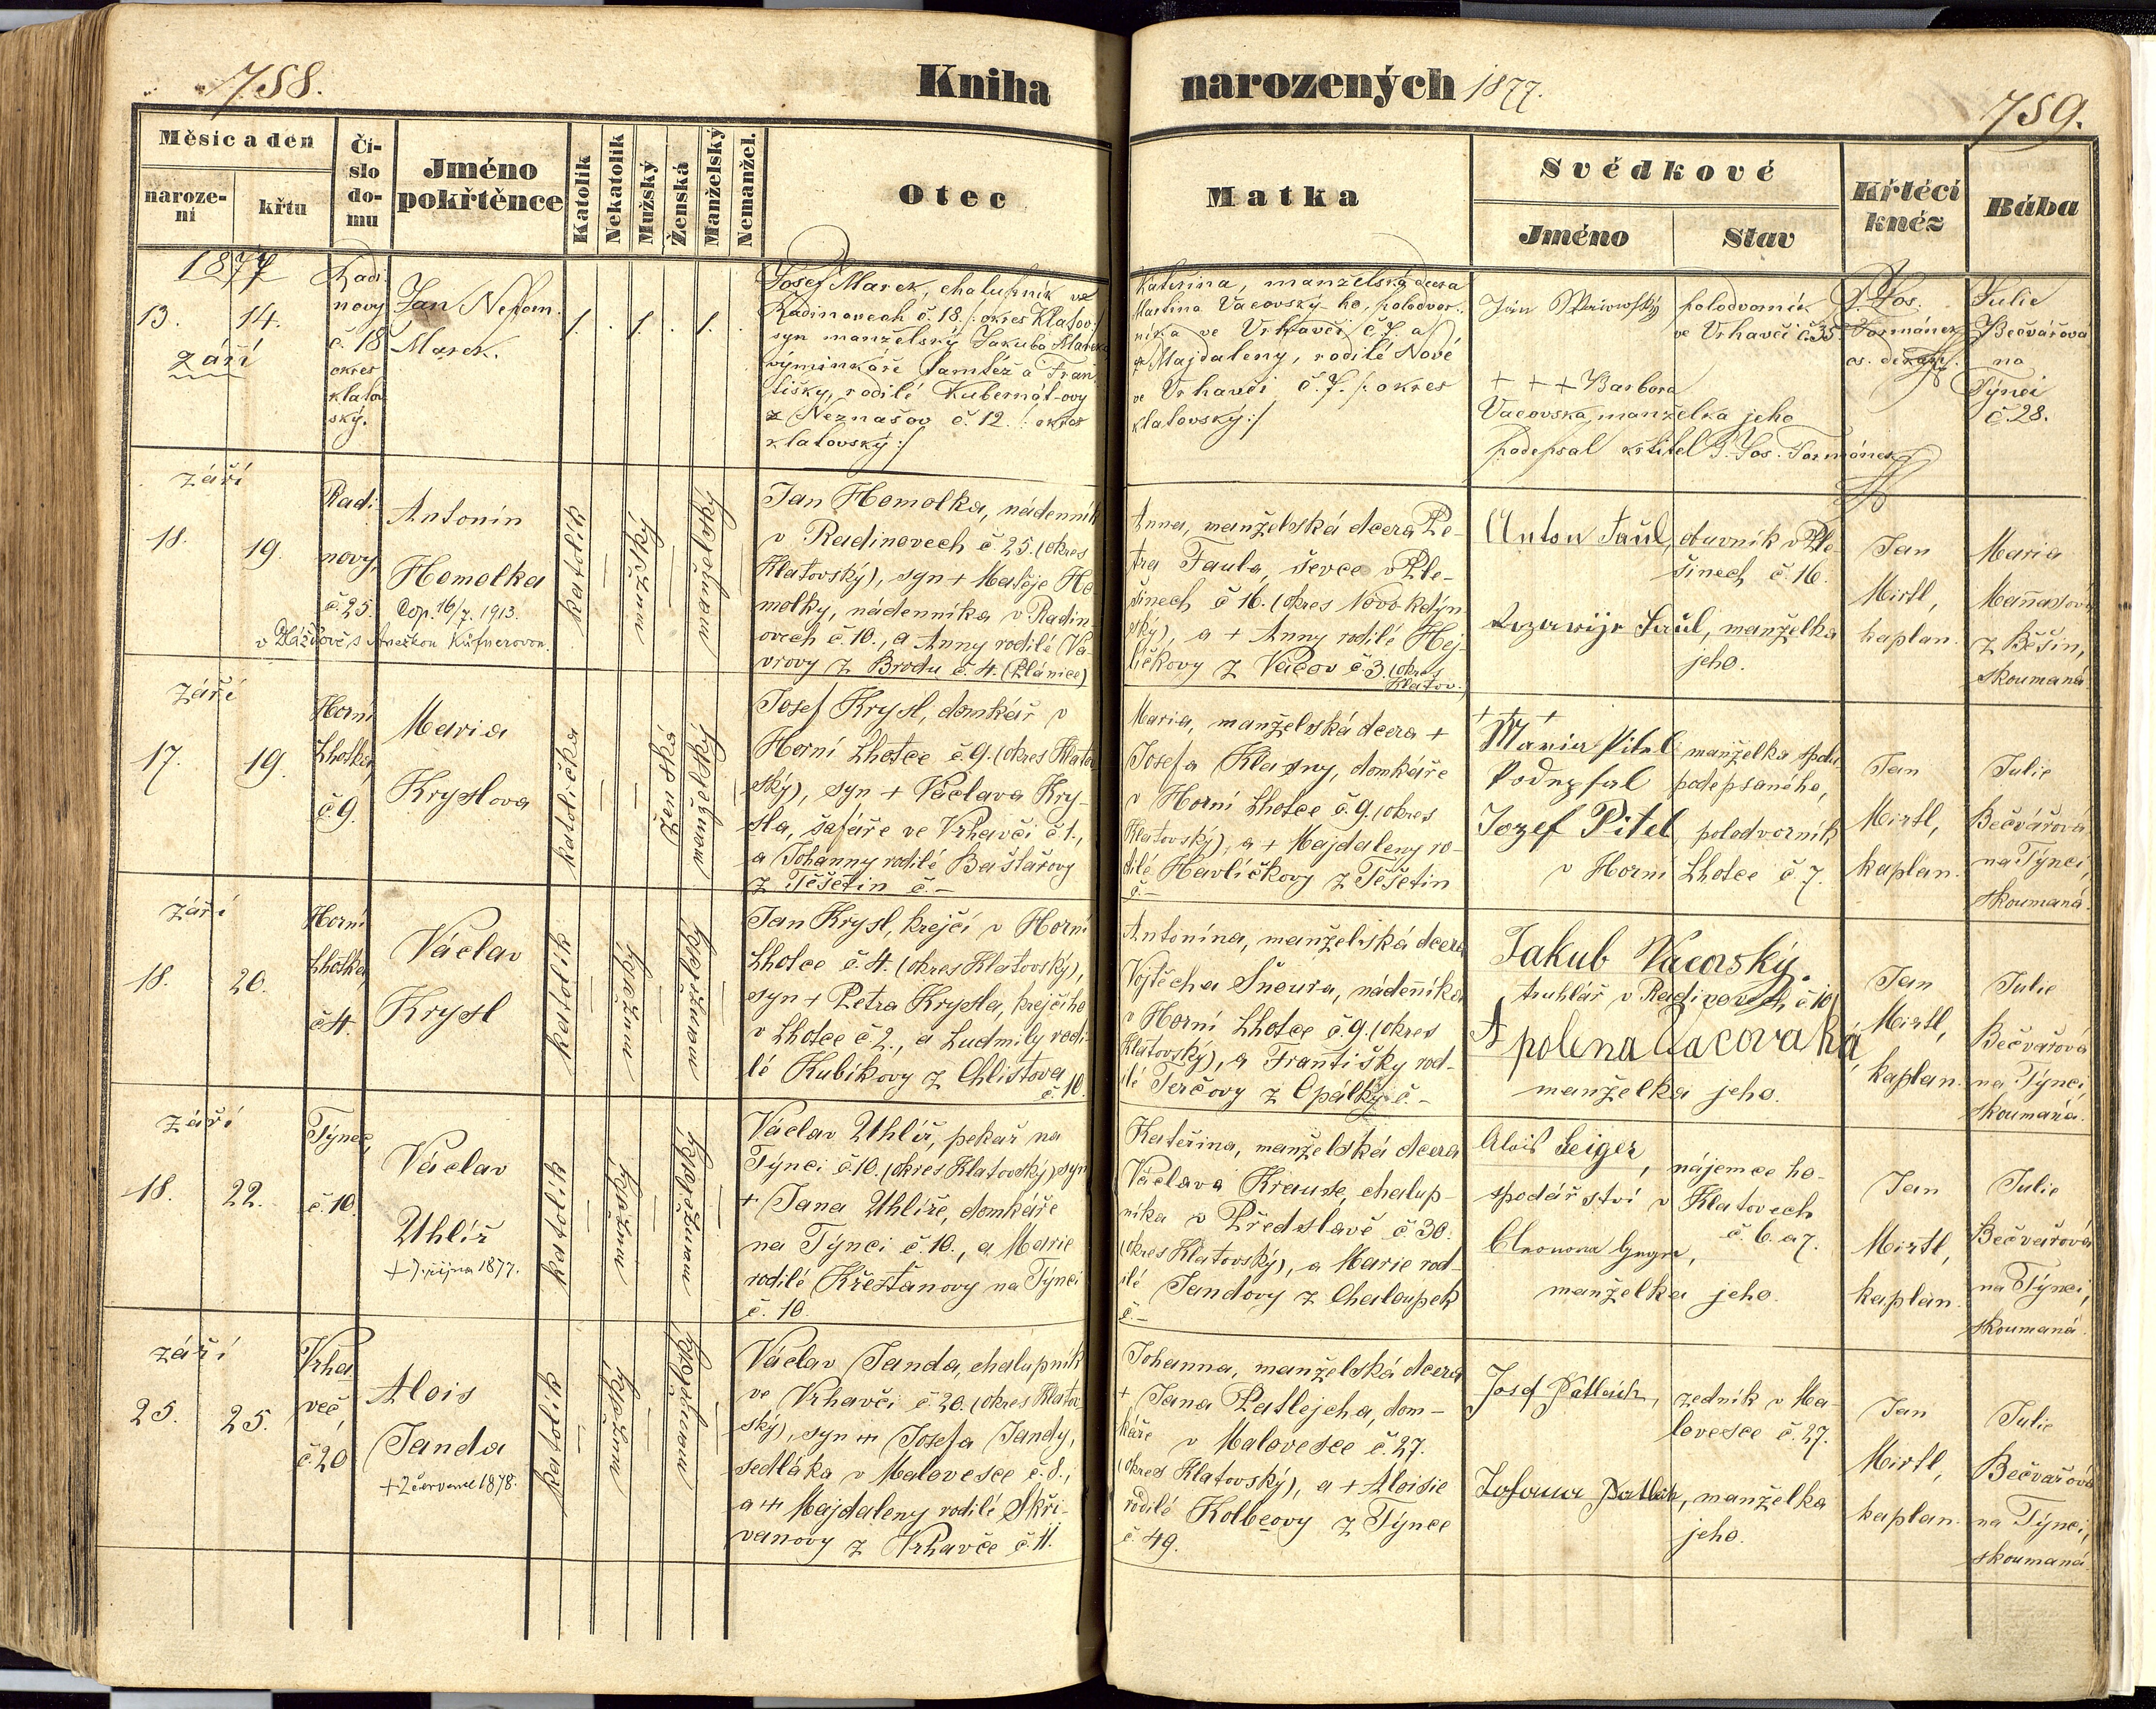 758.
Kniha
narozených 1877.
759.
Měsíc a den
naroze-
ní
křtu
Čí-
slo
do-
mu
Jméno
pokřtěnce
Katolík
Nekatolík
Mužský
Ženská
Manželský
Nemanžel.
Otec
Matka
Svědkové
Jméno
Stav
Křtěcí
kněz
Bába
1877
13. 14.
září
Radi
novy
č. 18
okres
klatov
ský.
Jan Nepom.
Marek.
1. 1. 1.
Josef Marek, chalupník ve
Radinovech č. 18. /: okres Klatov:/
syn manželský Jakuba Marka
výminkáře tamtéž a Fran
tišky, rodilé Kubernát-ovy
z Neznašov č. 12. /: okres
klatovský :/
Kateřina, manželská dcera
Martina Vacovský-ho, polodvor-
níka ve Vrhavči č. 7. a
Majdaleny, rodilé Nové
ve Vrhavči č. 7. /: okres
klatovský :/
Jan
polodvorník
ve Vrhavči č. 35.
+ + + Barbora
Vacovska, manželka jeho
podepsal křtitel P. Jos. Formánek
P. Jos.
Formánek
os. děkan
Julie
Bečvářova
na
Týnci
č. 28.
září
18. 19.
Radi
novy,
č. 25.
Antonín
Homolka
Cop. 16/7. 1913.
v s Anežkou Küfnerovou.
katolík
mužský
manželský
Jan Homolka, nádenník
v Radinovech č. 25. (okres
Klatovský), syn + Matěje Ho-
molky, nádenníka v Radin-
ovech č. 10., a Anny rodilé Va-
vrovy z Brodu č. 4. (Plánice)
Anna, manželská dcera Pe-
tra Faula, ševce v Ple-
šinech č. 16. (okres Novo-kdýn
ský), a + Anny rodilé Hej-
ličkovy z Vacov č. 3. (okres
Klatov.)
Anton Faül, obuvník v Ple-
šinech č. 16.
Faül, manželka
jeho.
Jan
Mirtl,
kaplan.
Maria
Maňasova
z Běšin,
skoumaná
září
17. 19.
Horní
Lhotka,
č. 9.
Maria
Kryslova
katolička
ženská
manželský
Josef Krysl, domkář v
Horní Lhotce č. 9. (okres Klatov
ský), syn + Václava Kry-
sla, šafáře ve Vrhavči č. 1.,
a Johanny rodilé Baštařovy
z Těšetin č. –
Maria, manželská dcera +
Josefa Klasny, domkáře
v Horní Lhotce č. 9. (okres
Klatovský), a + Majdaleny ro-
dilé Havlíčkovy z Těšetin
č. –
+ + +
Maria Pitel manželka spolu
Podepsal podepsaného,
Jozef Pitel polodvorník
v Horní Lhotce č. 7.
Jan
Mirtl,
kaplan.
Julie
Bečvářová
na Týnci,
skoumaná.
září
18. 20.
Horní
Lhotka,
č. 4.
Václav
Krysl
katolík
mužský
manželský
Jan Krysl, krejčí v Horní
Lhotce č. 4. (okres Klatovský),
syn + Petra Krysla, krejčího
v Lhotce č. 2., a Ludmily rodi-
lé Kubíkovy z Chlistova
č. 10.
Antonína, manželská dcera
Vojtěcha Šnoura, nádenníka
v Horní Lhotce č. 9. (okres
Klatovský), a Františky rod-
ilé Terčovy z Opálky č. –
Jakub Vacovský.
truhlář v Radinovech č. 10
Apolena Vacovská,
manželka jeho.
Jan
Mirtl,
kaplan.
Julie
Bečvařová
na Týnci,
skoumaná.
září
18. 22.
Týnec,
č. 10.
Václav
Uhlíř
+ 7. října 1877.
katolík
mužský
manželský
Václav Uhlíř, pekař na
Týnci č. 10. (okres Klatovský) syn
+ Jana Uhlíře, domkáře
na Týnci č. 10., a Marie
rodilé Křesťanovy na Týnci
č. 10.
Kateřina, manželská dcera
Václava Krause, chalup-
níka v Předslavě č. 30.
(okres Klatovský), a Marie rod-
ilé Jandovy z Chaloupek
č. –
Alois Geiger, nájemce ho-
spodářství v Klatovech
č. 6. a 7.
manželka jeho.
Jan
Mirtl,
kaplan.
Julie
Bečvařová
na Týnci,
skoumaná.
září
25. 25.
Vrha
več,
č. 20
Alois
Janda
+ 2 července 1878.
katolík
mužský
manželský
Václav Janda, chalupník
ve Vrhavči č. 20. (okres Klatov
ský), syn ++ Josefa Jandy,
sedláka v Malovesce č. 8.,
a ++ Majdaleny rodilé Skři-
vanovy z Vrhavče č. 11.
Johanna, manželská dcera
+ Jana Patlejcha, dom-
káře v Malovesce č. 27.
(okres Klatovský), a + Aloisie
rodilé Kolbeovy z Týnce
č. 49.
Josef Patleich, zedník v Ma-
lovesce č. 27.
manželka
jeho.
Jan
Mirtl,
kaplan.
Julie
Bečvařová
na Týnci,
skoumaná.